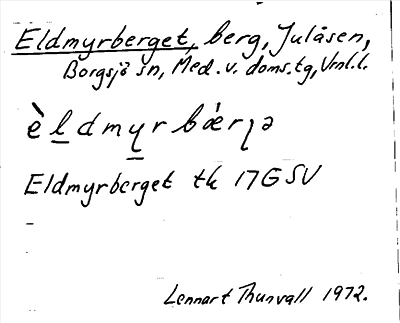 Eldmyrberget, berg, Julåsen,
Borgsjö sn, Med. v. doms.tg, Vrnl. l.
è l d m y r b ǽ r ʅ ə
Eldmyrberget tk 17G SV
Lennart Thunvall 1972.